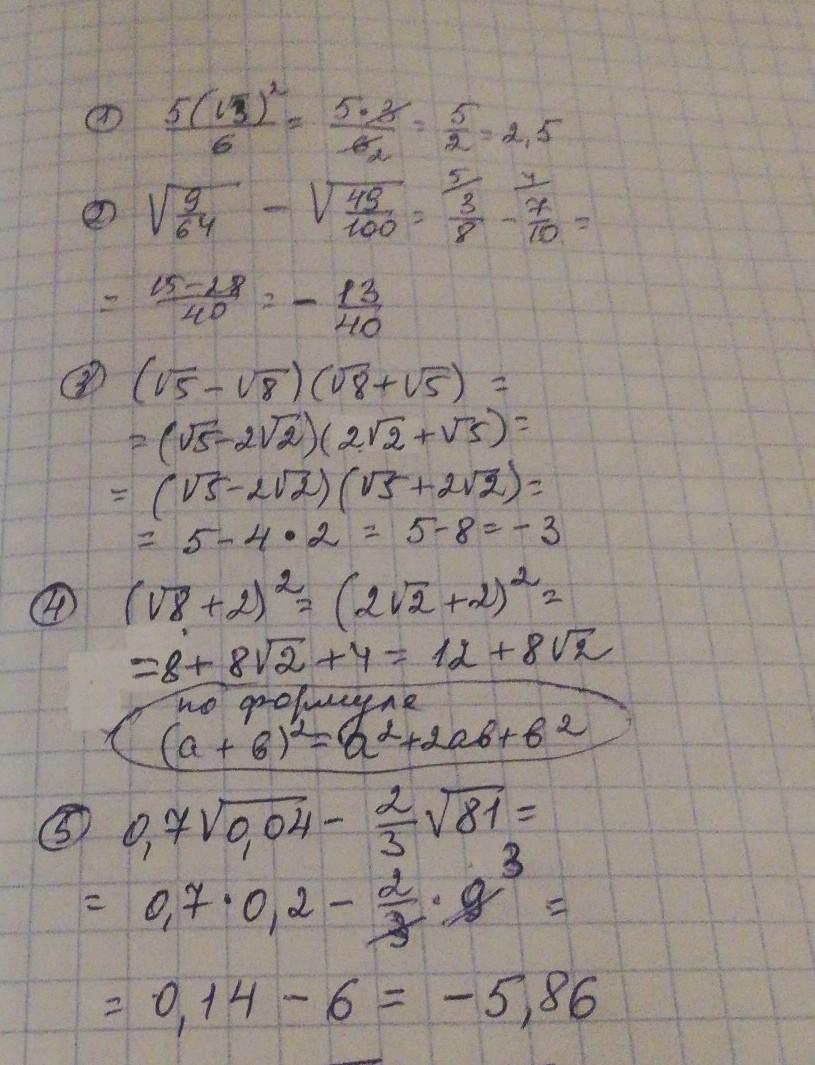 ① 5(√3)²/6 = 5·3/6 2 = 5/2 = 2,5
② √(9/64) − √(49/100) = 5/ 3/8 − 4/ 7/10 =
= 15−28/40 = − 13/40
③ (√5−√8)(√8+√5) =
= (√5−2√2)(2√2+√5) =
= (√5−2√2)(√5+2√2) =
= 5−4·2 = 5−8 = −3
④ (√8+2)² = (2√2+2)² =
= 8+8√2+4 = 12+8√2
по формуле
(а+в)² = а²+2ав+в²
⑤ 0,7√0,04 − 2/3 √81 =
= 0,7·0,2 − 2/3 · 9 3 =
= 0,14 − 6 = −5,86